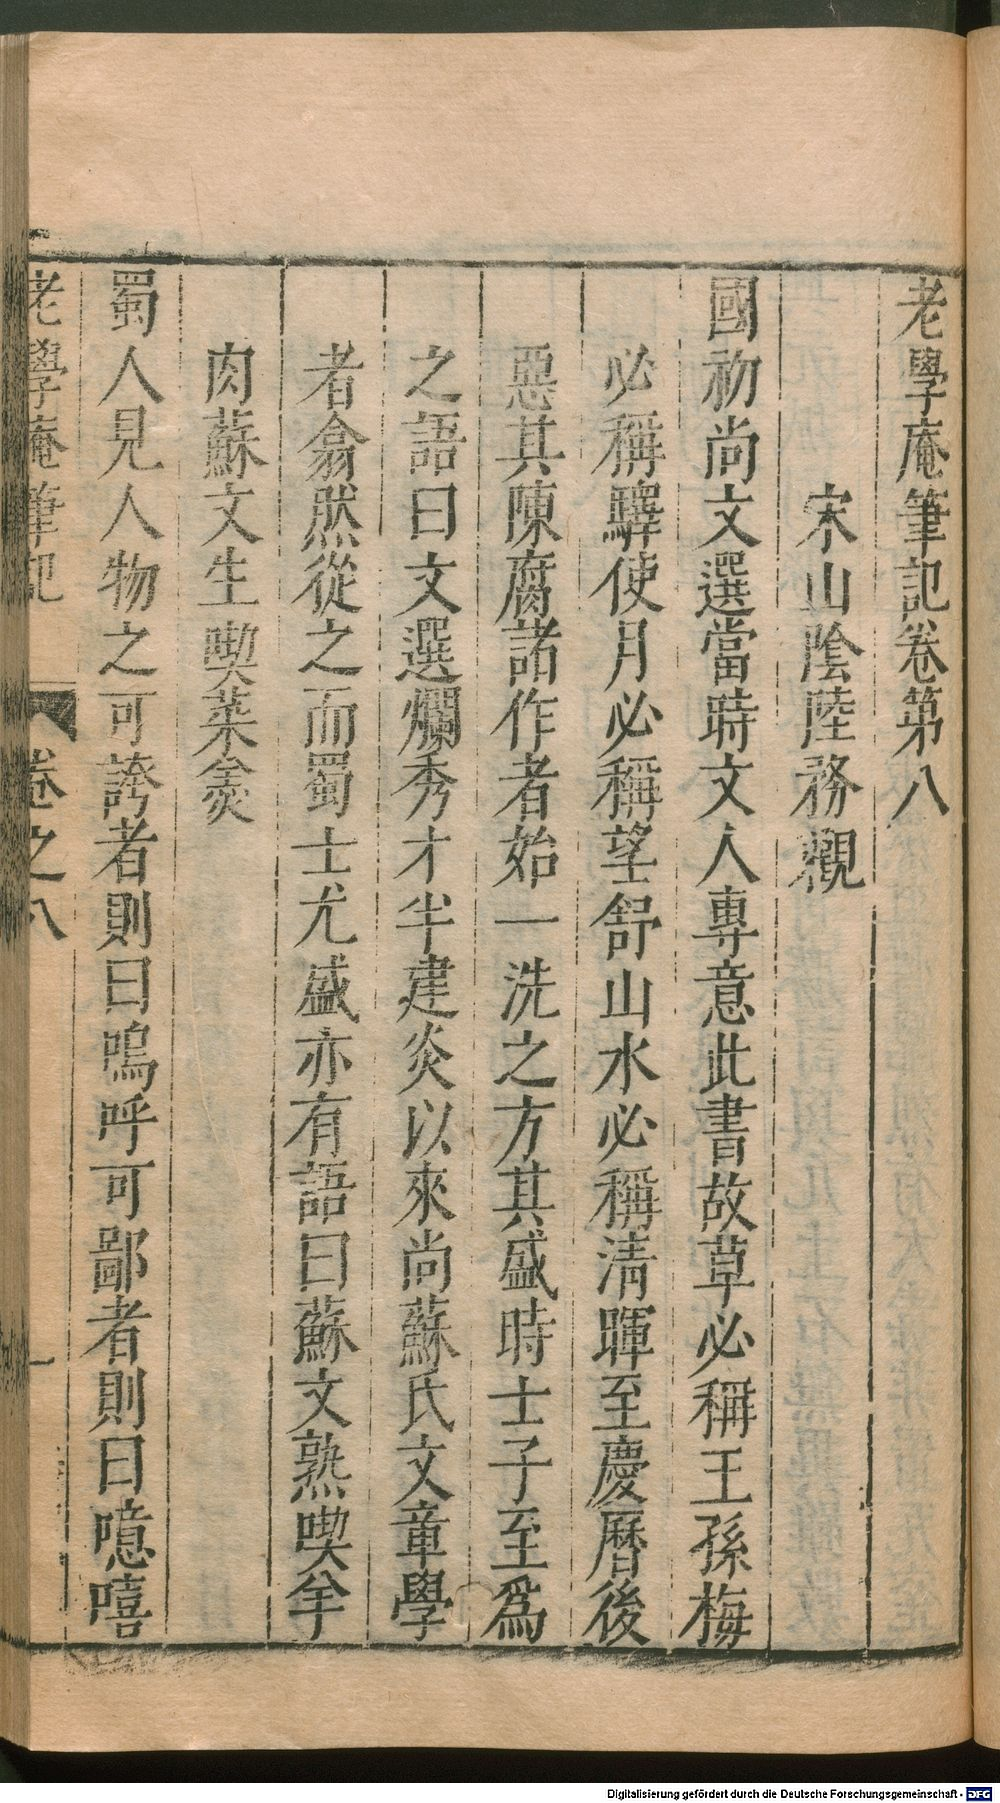 老學庵筆記卷第八
宋山陰陸務觀
國初尚文選當時文人專意此書故草必稱王孫梅
必稱驛使月必稱望舒山水必稱清暉至慶曆後
惡其陳腐諸作者始一洗之方其盛時士子至爲
之語曰文選爛秀才半建炎以來尚蘇氏文章學
者翕然從之而蜀士尤盛亦有語曰蘇文熟喫羊
肉蘇文生喫菜羹
蜀人見人物之可誇者則曰嗚呼可鄙者則曰噫嘻
老學庵筆記 卷之八 一
Digitalisierung gefördert durch die Deutsche Forschungsgemeinschaft - DFG